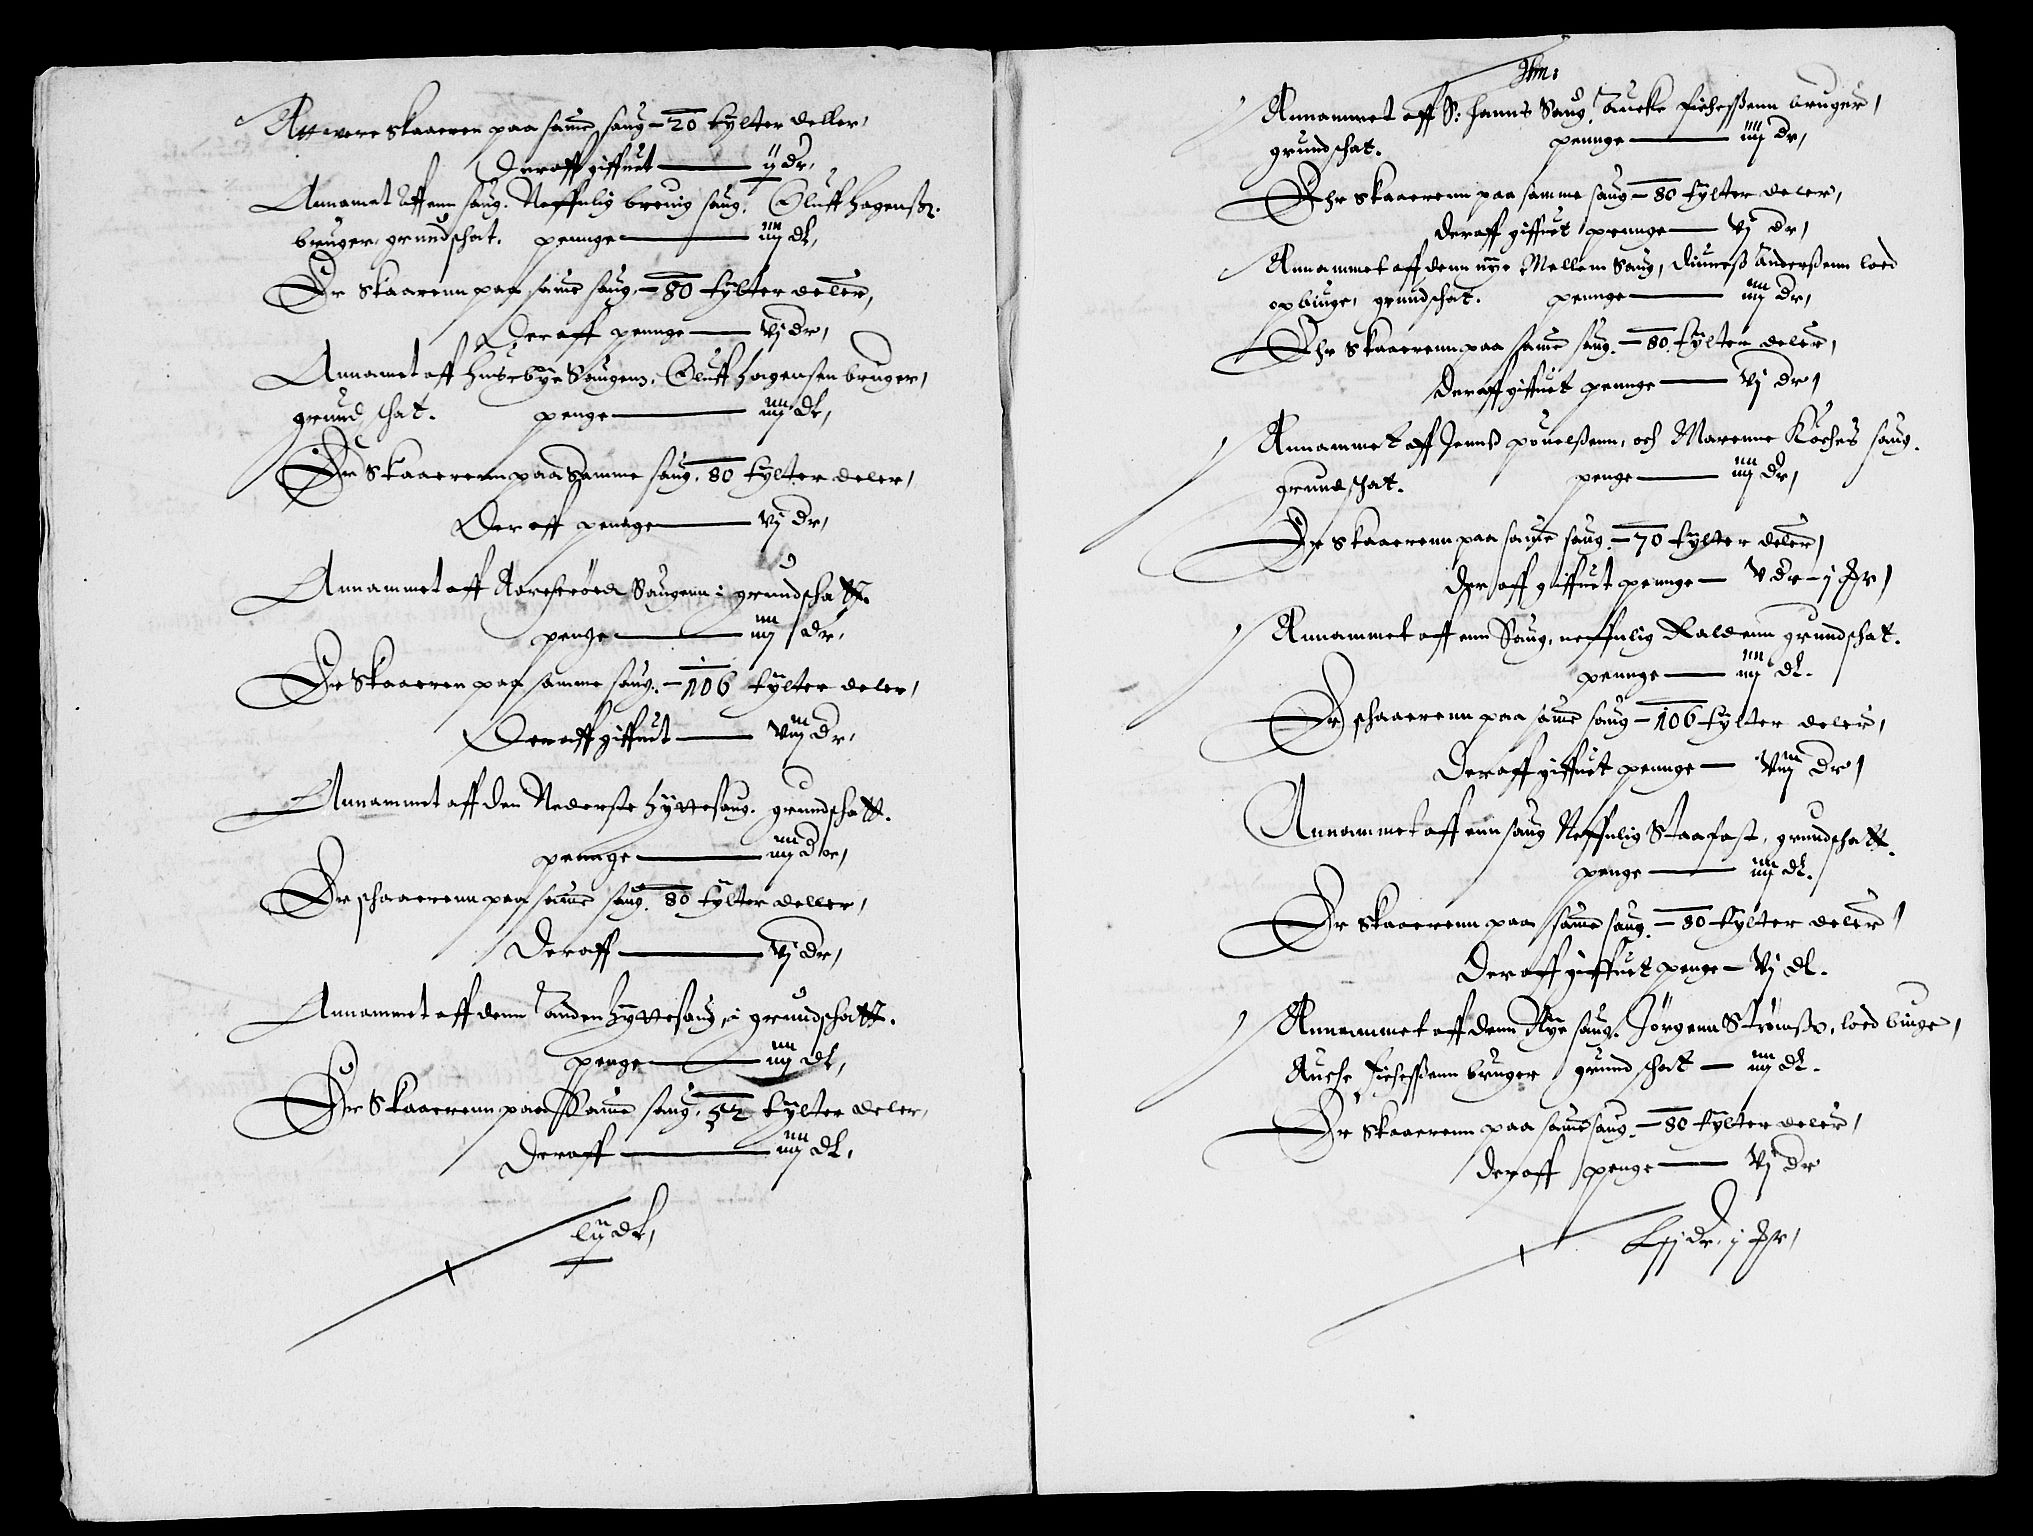 Att were skaaeren paa same saug – 20 tylter deller,
Deraff giffuet — ij dr,
Annamet Aff enn saug. Neffnlig breuig saug. Oluff hagenß.
bruger, grundschat. pennge — iiij dl,
Er skaarenn paa same saug – 80 tylter deler,
Deraff pennge — vj dr,
Annamet aff husebye Saugenn, Oluff hagensen bruger,
grund schat. penge — iiij dl,
Er skaaerenn paa Samme saug. 80 tylter deler,
Der aff pennge — vj dr,
Annammet aff Saugenn: grundschatt.
penge — iiij dr.
Er skaaeren paa samme saug. – 106 tylter deler,
Deraff giffuit — viij dr,
Annammet aff den Nederste hyttesaug. grundschatt.
pennge — iiij dr,
Er schaaerenn paa same saug. 80 tylter deller,
Deraff — vj dr,
Annammet aff denn Anden hyttesaug, grundschatt.
penge — iiij dl,
Er Skaaerenn paa Same saug. 52 tylter deler,
Deraff — iiij dl,
lij dl,
Itm:
Annammet aff S: hanns Saug, Aucke bruger,
grundschat. pennge — iiij dr,
Ehr skaaerenn paa samme saug – 80 tylter deler,
deraff giffuet pennge — vj dr,
Annammet aff denn nye Mellem Saug, Anderßenn loed
opbiuge, grundschat. pennge — iiij dr,
Ehr skaaerenn paa same saug. – 80 tylter deler,
deraff giffuet pennge — vj dr,
Annammet aff Jennß pouelßenn, och Marenne Koches saug.
grundschat. penge — iiij dr,
Er skaaerenn paa same saug. – 70 tylter deler,
der aff giffuet pennge — v dr – j Jr,
Annammet aff enn Saug, neffnlig Raldenn grundschat.
pennge — iiij dl.
Er schaaerenn paa same saug – 106 tylter deler,
Deraff giffuet pennge — viij dr,
Annammet aff enn saug Neffnlig Staafast, grundschatt.
penge — iiij dl.
Er skaaerenn paa same saug. – 80 tylter deler,
Der aff giffuet penge – vj dl.
Annammet aff denn Nye saug. Jørgenn loed biuge,
Auche bruger grund schat — iiij dl.
Er skaaerenn paa same saug. – 80 tylter deler,
der aff penge — vj dr
dr. j Jr,